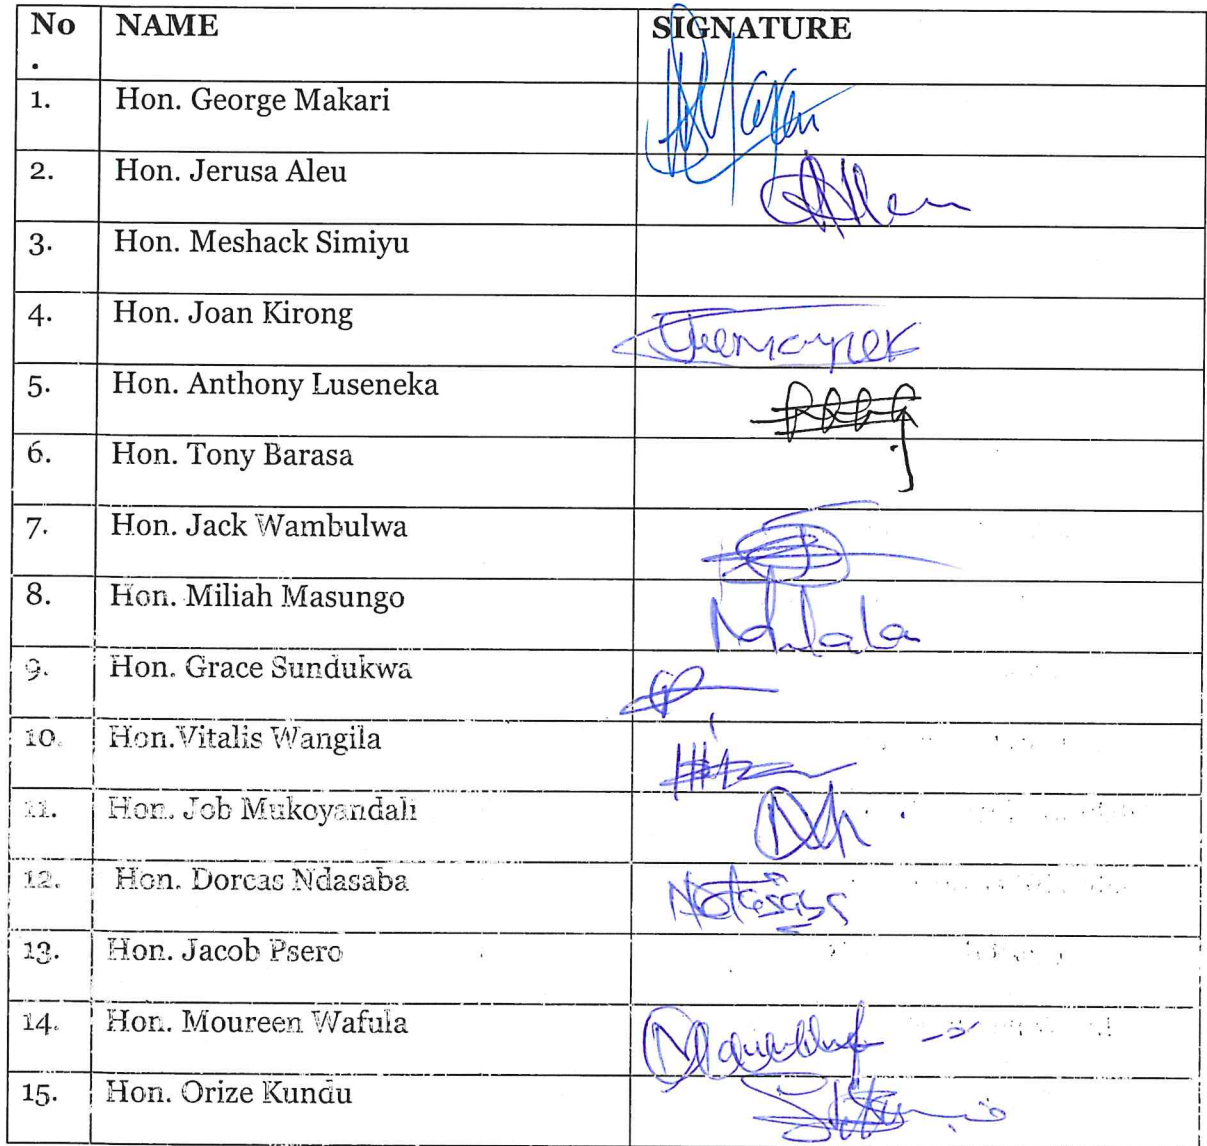 No NAME SIGNATURE
.
1. Hon. George Makari
2. Hon. Jerusa Aleu
3. Hon. Meshack Simiyu
4. Hon. Joan Kirong
5. Hon. Anthony Luseneka
6. Hon. Tony Barasa
7. Hon. Jack Wambulwa
8. Hon. Miliah Masungo
9. Hon. Grace Sundukwa
10. Hon.Vitalis Wangila
11. Hon. Job Mukoyandali
12. Hon. Dorcas Ndasaba
13. Hon. Jacob Psero
14. Hon. Moureen Wafula
15. Hon. Orize Kundu